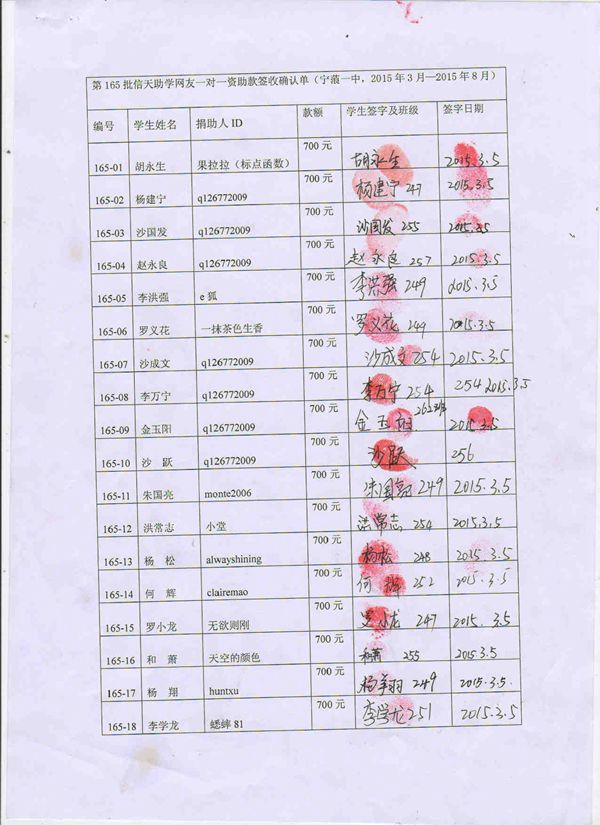 第 165 批信天助学网友一对一资助款签收确认单（宁蒗一中，2015 年 3 月—2015 年 8 月）
编号 学生姓名 捐助人 ID 款额 学生签字及班级 签字日期
165-01 胡永生 果拉拉（标点函数） 700 元 胡永生 2015.3.5
165-02 杨建宁 q126772009 700 元 杨建宁 247 2015.3.5
165-03 沙国发 q126772009 700 元 沙国发 255 2015.3.5
165-04 赵永良 q126772009 700 元 赵永良 257 2015.3.5
165-05 李洪强 e 狐 700 元 李洪强 249 2015.3.5
165-06 罗义花 一抹茶色生香 700 元 罗义花 249 2015.3.5
165-07 沙成文 q126772009 700 元 沙成文 254 2015.3.5
165-08 李万宁 q126772009 700 元 李万宁 254 254 2015.3.5
165-09 金玉阳 q126772009 700 元 金玉阳 262班 2015.3.5
165-10 沙 跃 q126772009 700 元 沙跃 256
165-11 朱国亮 monte2006 700 元 朱国亮 249 2015.3.5
165-12 洪常志 小堂 700 元 洪常志 254 2015.3.5
165-13 杨 松 alwayshining 700 元 杨松 248 2015.3.5
165-14 何 辉 clairemao 700 元 何辉 252 2015.3.5
165-15 罗小龙 无欲则刚 700 元 罗小龙 247 2015.3.5
165-16 和 萧 天空的颜色 700 元 和萧 255 2015.3.5
165-17 杨 翔 huntxu 700 元 杨翔 249 2015.3.5
165-18 李学龙 蟋蟀 81 700 元 李学龙 251 2015.3.5